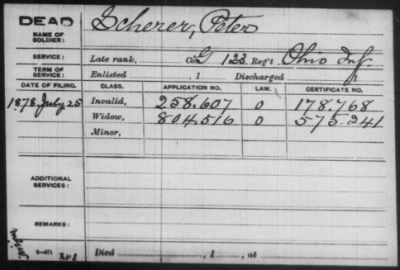 DEAD
NAME OF SOLDIER:
Scherer, Peter
SERVICE:
Late rank, Co. G 123 Reg't Ohio Inf.
TERM OF SERVICE:
Enlisted , 1 Discharged
DATE OF FILING. CLASS. APPLICATION NO. LAW. CERTIFICATE NO.
1878, July 25 Invalid, 258.607 O 178.768
Widow, 804,516 O 575.241
Minor,
ADDITIONAL SERVICES:
REMARKS:
Died , 1